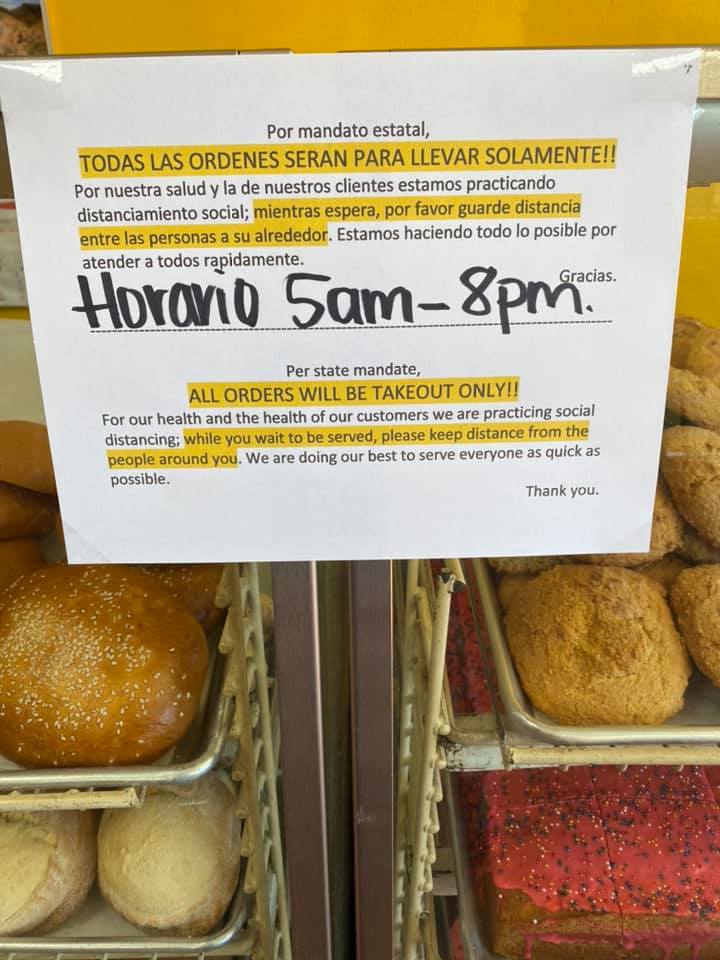 Por mandato estatal,
TODAS LAS ORDENES SERAN PARA LLEVAR SOLAMENTE!!
Por nuestra salud y la de nuestros clientes estamos practicando
distanciamiento social; mientras espera, por favor guarde distancia
entre las personas a su alrededor. Estamos haciendo todo lo posible por
atender a todos rapidamente.
Gracias.
Horario 5am-8pm.
Per state mandate,
ALL ORDERS WILL BE TAKEOUT ONLY!!
For our health and the health of our customers we are practicing social
distancing; while you wait to be served, please keep distance from the
people around you. We are doing our best to serve everyone as quick as
possible.
Thank you.